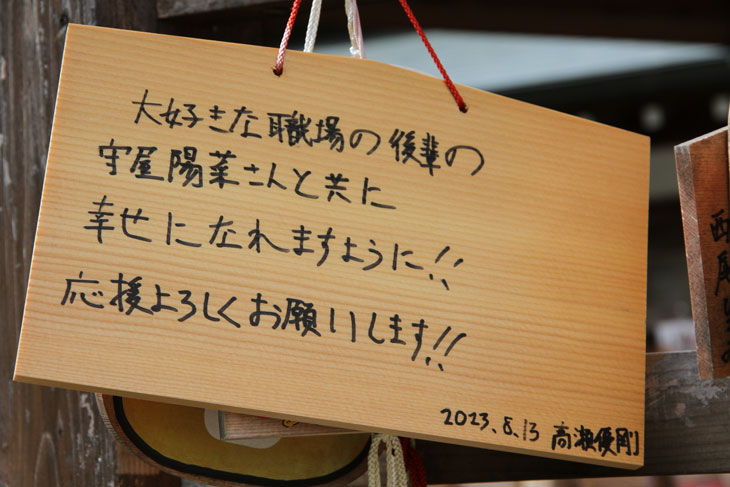 大好きな職場の後輩の
守屋陽菜さんと共に
幸せになれますように!!
応援よろしくお願いします!!
2023.8.13 高瀬優剛
西尾